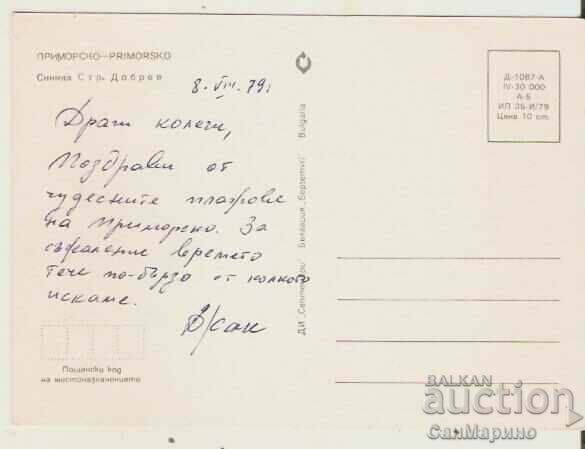 ПРИМОРСКО—PRIMORSKO
Снимка Стр. Добрев
8. VIII. 79г
Драги колеги,
Поздрави от
чудесните плажове
на Приморско. За
съжаление времето
тече по-бързо от колкото
искаме.
Пощенски код
на местоназначението
ДИ „Септември" България „Septemvri" Bulgaria
Д-1087-А
IV-30 000
А-6
ИП 35-И/79
Цена 10 ст.
BALKAN
auction
СанМарино